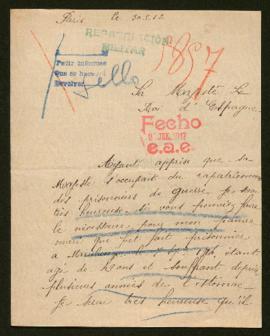 Paris le 30.5.17
REPATRIACIÓN
MILITAR
Pedir informes
que se haran
Devolver
Sello
1857
Sa Majesté Le
Roi d'Espagne
Fecho
JUL. 1917
e.a.e.
Ayant appris que sa
Majesté s'occupait du rapatriement
des prisonniers de guerre, je serai
très heureuse si vous pouviez faire
le nécessaire pour mon
mari que fut fait prisonnier
à
agé de ans et souffrant depuis
plusieurs années de l'estomac
Je serai très heureuse qu'il